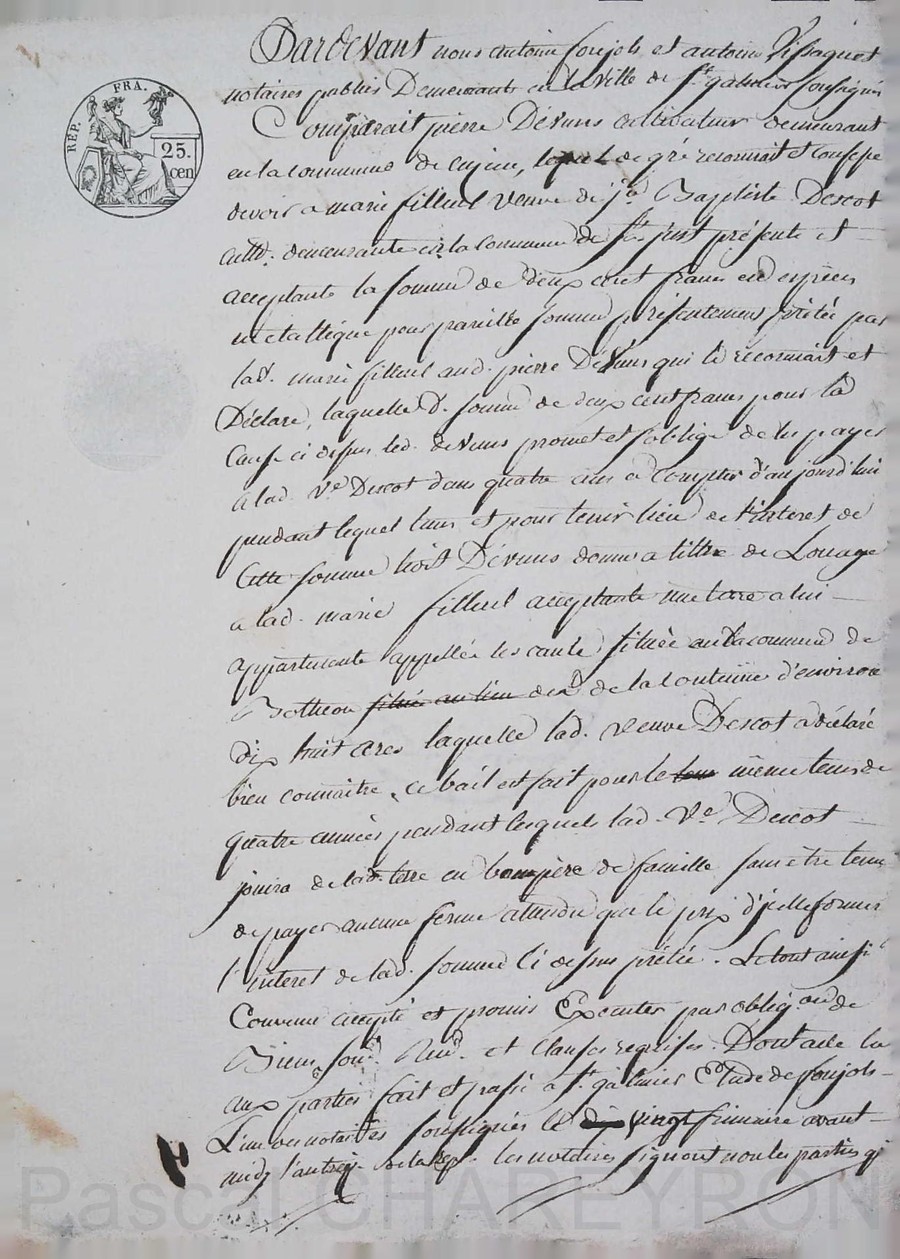 REP. FRA.
25.
cen
Pardevant nous antoine soujols et antoine
notaires publics Demeurants en la ville de st. galmier soussignés
Comparait pierre Devuns cultivateur demeurant
en la commune de, lequel de gré reconnait et confesse
devoir a marie filleul veuve de jn Baptiste Descot
cultr. demeurante en la commune de st just présente et
acceptante la somme de deux cent francs en espèces
metallique pour pareille somme présentement prêtée par
lad. marie filleul aud. pierre Devuns qui le reconnait et
Déclare, laquelle d. somme de deux cent francs pour la
Cause ci dessus led. devuns promet et soblige de les payer
a lad. Ve Descot dans quatre ans a compter d'aujourd'hui
pendant lequel tems et pour tenir lieu de l'interet de
Cette somme Devuns donne a tittre de Louage
a lad. marie filleul acceptante une terre a lui
appartenante appellée les située en la commune de
Botheon situé au lieu de la contenue d'environ
dix huit ares laquelle lad. veuve Descot a déclaré
bien connaitre, ce bail est fait pour le tems même tems de
quatre années pendant lesquels lad. Ve Descot
jouira de lad. terre en bon père de famille sans être tenue
de payer aucune ferme attendu que le prix d'icelle forme
l'interet de lad. somme ci dessus prêtée. Le tout ainsi
Convenu accepté et promis Executer par obligaon de
Biens, soud. Rend. et clauses requises. Dont acte lu
aux parties fait et passé a st. galmier Etude de soujols
L'un des notaires soussignés le vingt frimaire avant
midy l'an treize de la Rep. les notaires signent non les parties q
Pascal CHAREYRON